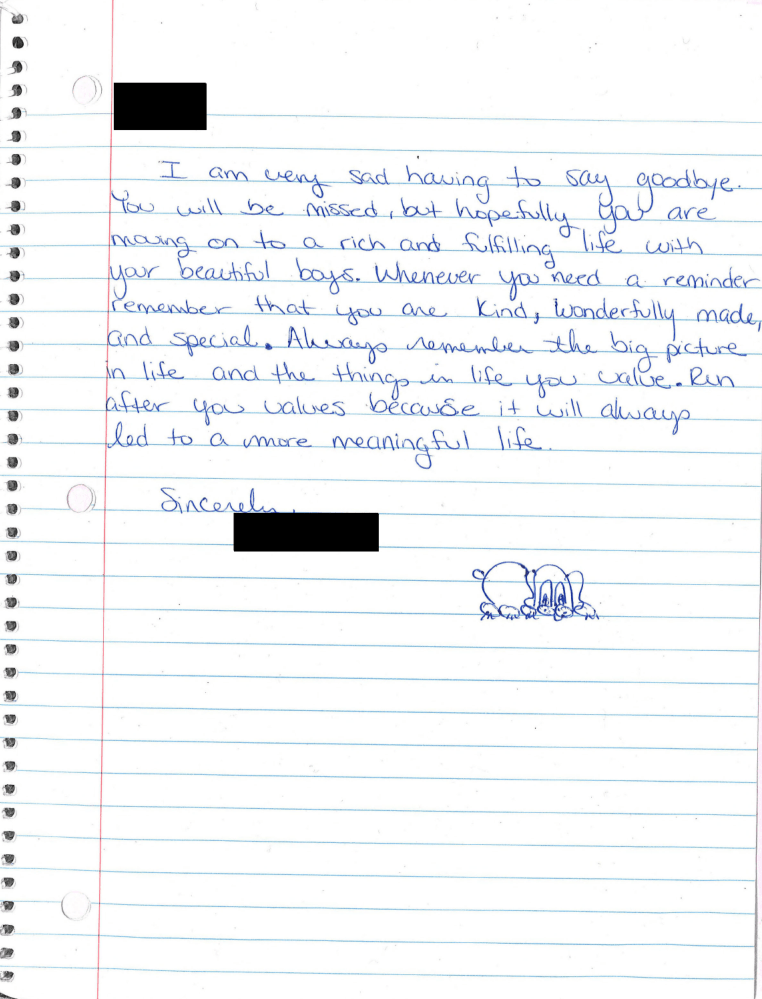 I am very sad having to say goodbye.
You will be missed, but hopefully you are
moving on to a rich and fulfilling life with
your beautiful boys. Whenever you need a reminder
remember that you are kind, wonderfully made,
and special. Always remember the big picture
in life and the things in life you value. Run
after you values because it will always
led to a more meaningful life.
Sincerely,